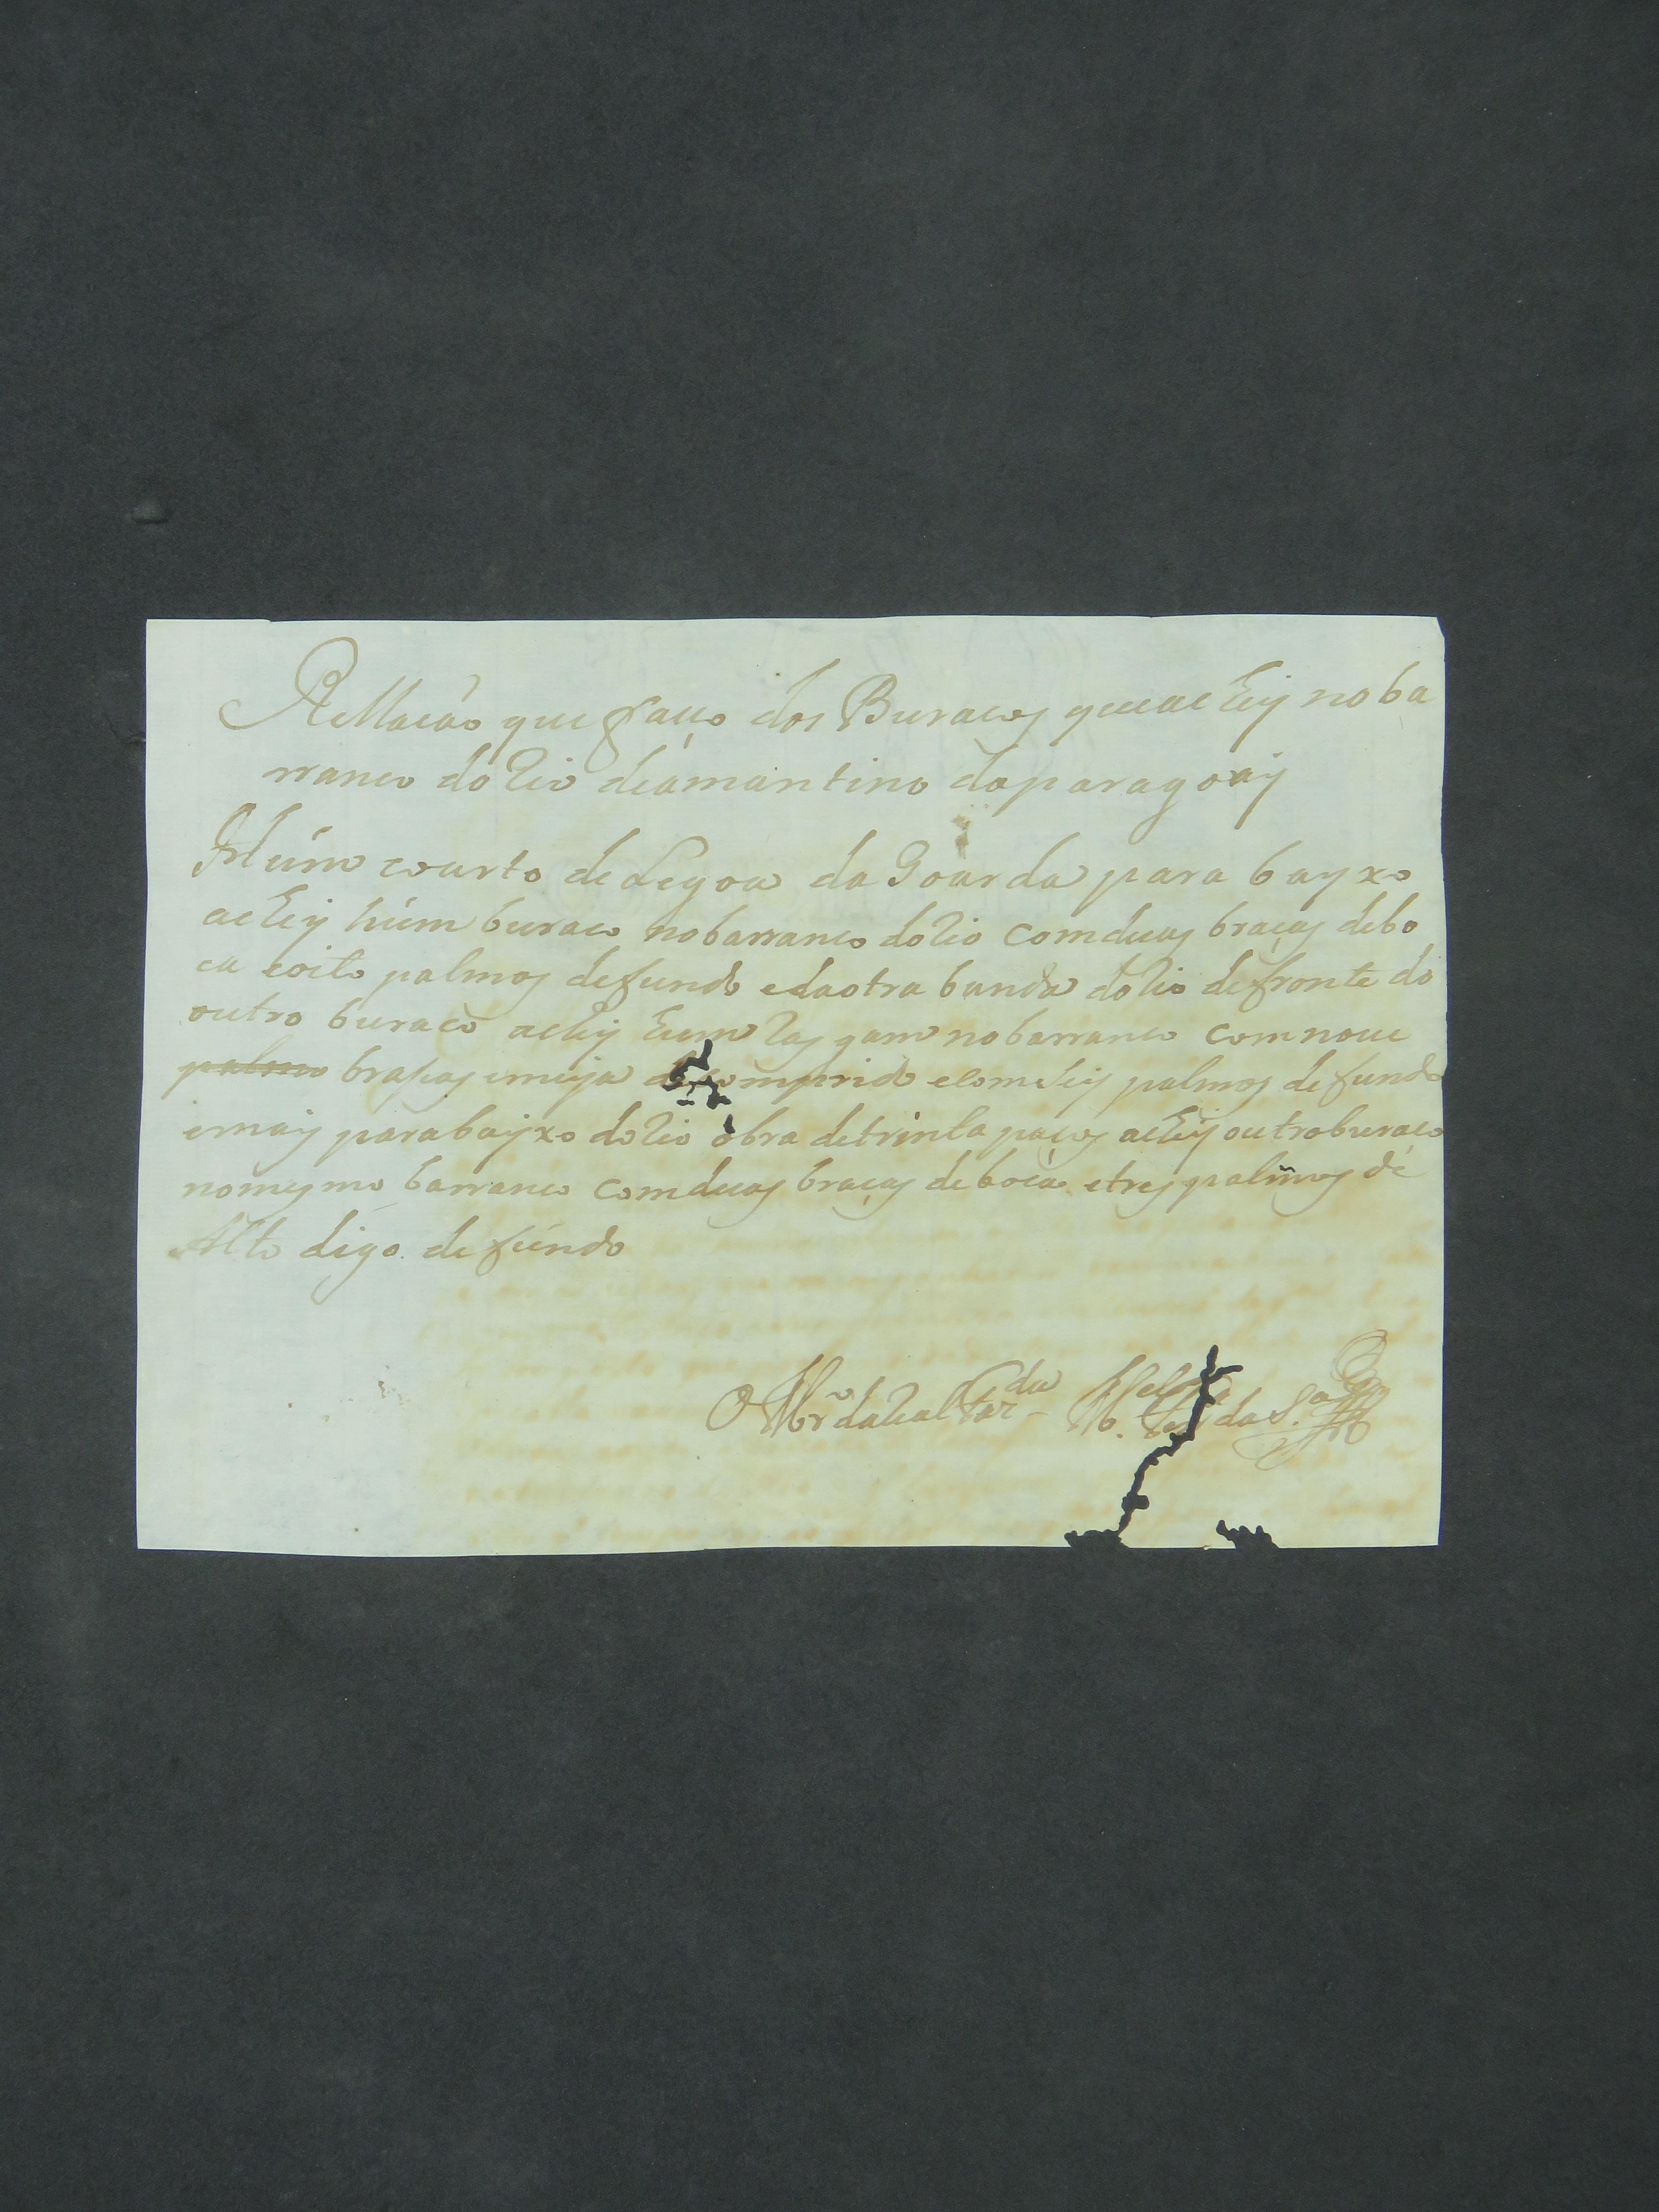 Rellacáo que faço dos Buracos que achey no ba
rranco do Rio deamantino do paragoay
Húm coarto de Legoa da Goarda para bayxo
achey húm buraco no barranco do Rio com duas braças debo
ca eoito palmos defundo edaotra banda do Rio defronte do
outro buraco achey hum Rasgam no barranco com nove
palmo braças emeya de comprido ecom seis palmos de fundo
emais parabayxo do Rio obra detrinta paços achey outroburaco
nomesmo barranco com duas braças de boca etres palmos de
Alto digo de fundo
O Mro da Real Fazda M. da Sa